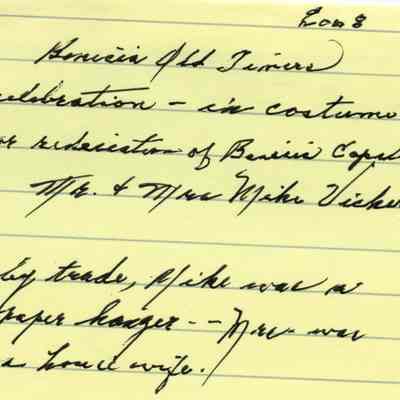 Benicia Old Timers
celebration - in costume
for rededication of Benicia Capitol
Mr. & Mrs Mike Vicker
by trade, Mike was a
paper hanger -- Mrs was
a house wife.